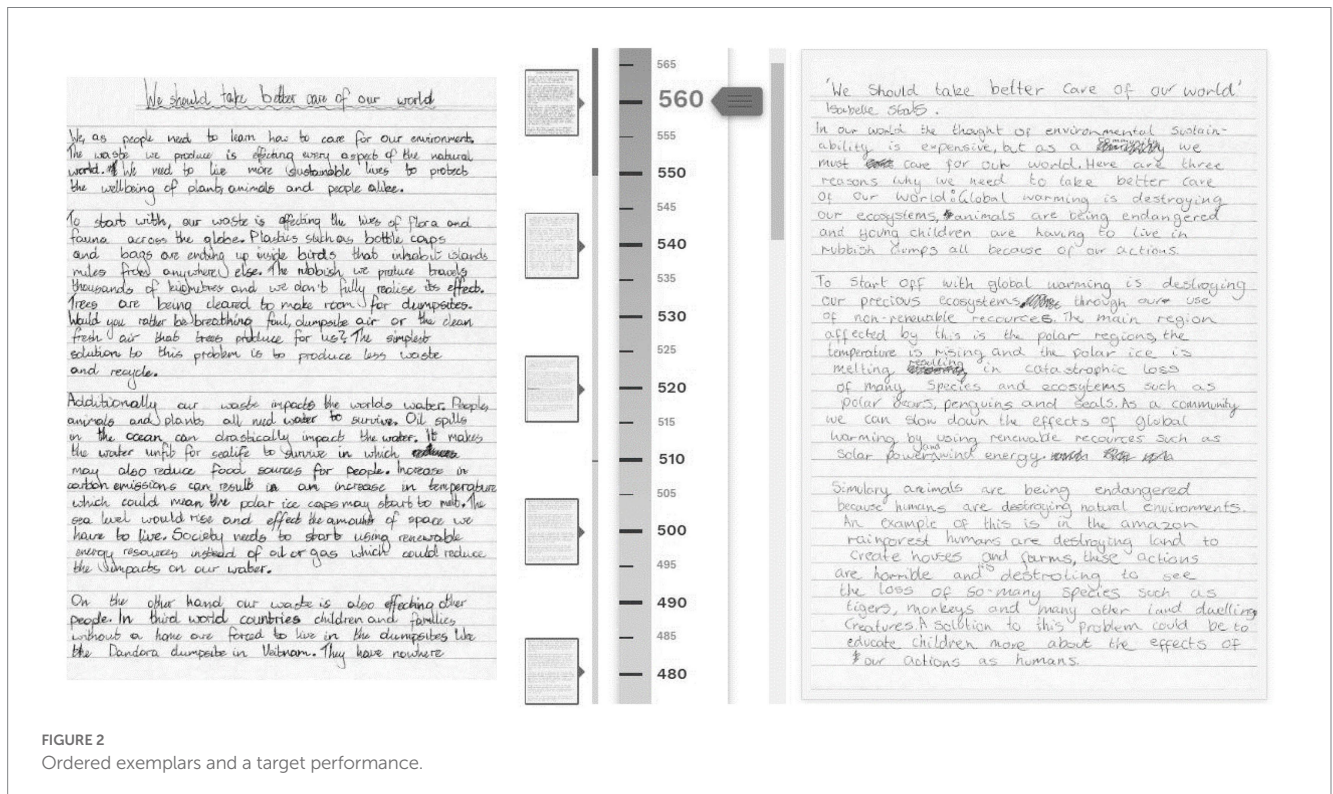 We should take better care of our world
We as people need to learn how to care for our environments.
The waste we produce is effecting every aspect of the natural
world. We need to live more sustainable lives to protect
the wellbeing of plants, animals and people alike.
To start with, our waste is affecting the lives of flora and
fauna across the globe. Plastics such as bottle caps
and bags are ending up inside birds that inhabit islands
miles from anywhere else. The rubbish we produce travels
thousands of kilometres and we don't fully realise its effect.
Trees are being cleared to make room for dumpsites.
Would you rather be breathing foul, dumpsite air or the clean
fresh air that trees produce for us? The simplest
solution to this problem is to produce less waste
and recycle.
Additionally our waste impacts the worlds water. People,
animals and plants all need water to survive. Oil spills
in the ocean can drastically impact the water. It makes
the water unfit for sealife to survive in which
may also reduce food sources for people. Increase in
carbon emissions can result in an increase in temperature
which could mean the polar ice caps may start to melt. The
sea level would rise and effect the amounts of space we
have to live. Society needs to start using renewable
energy resources instead of oil or gas which could reduce
the impacts on our water.
On the other hand our waste is also effecting other
people. In third world countries children and families
without a home are forced to live in the dumpsites like
the Dandora dumpsite in Veitnam. They have nowhere
565
560
555
550
545
540
535
530
525
520
515
510
505
500
495
490
485
480
'We Should take better care of our world'
Isabelle
In our world the thought of environmental sustain-
ability is expensive, but as a community we
must care for our world. Here are three
reasons why we need to take better care
of our world: Global warming is destroying
our ecosystems, animals are being endangered
and young children are having to live in
rubbish dumps all because of our actions.
To start off with global warming is destroying
our precious ecosystems through our use
of non-renewable recources. The main region
affected by this is the polar regions, the
temperature is rising and the polar ice is
melting resulting in catastrophic loss
of many species and ecosytems such as
polar bears, penguins and seals. As a community
we can slow down the effects of global
warming by using renewable recources such as
solar power and wind energy.
Simulary animals are being endangered
because humans are destroying natural environments.
An example of this is in the amazon
rainforest humans are destroying land to
create houses and farms, these actions
are horrible and destroling to see
the loss of so-many species such as
tigers, monkeys and many other land dwelling
creatures. A solution to this problem could be to
educate children more about the effects of
our actions as humans.
FIGURE 2
Ordered exemplars and a target performance.